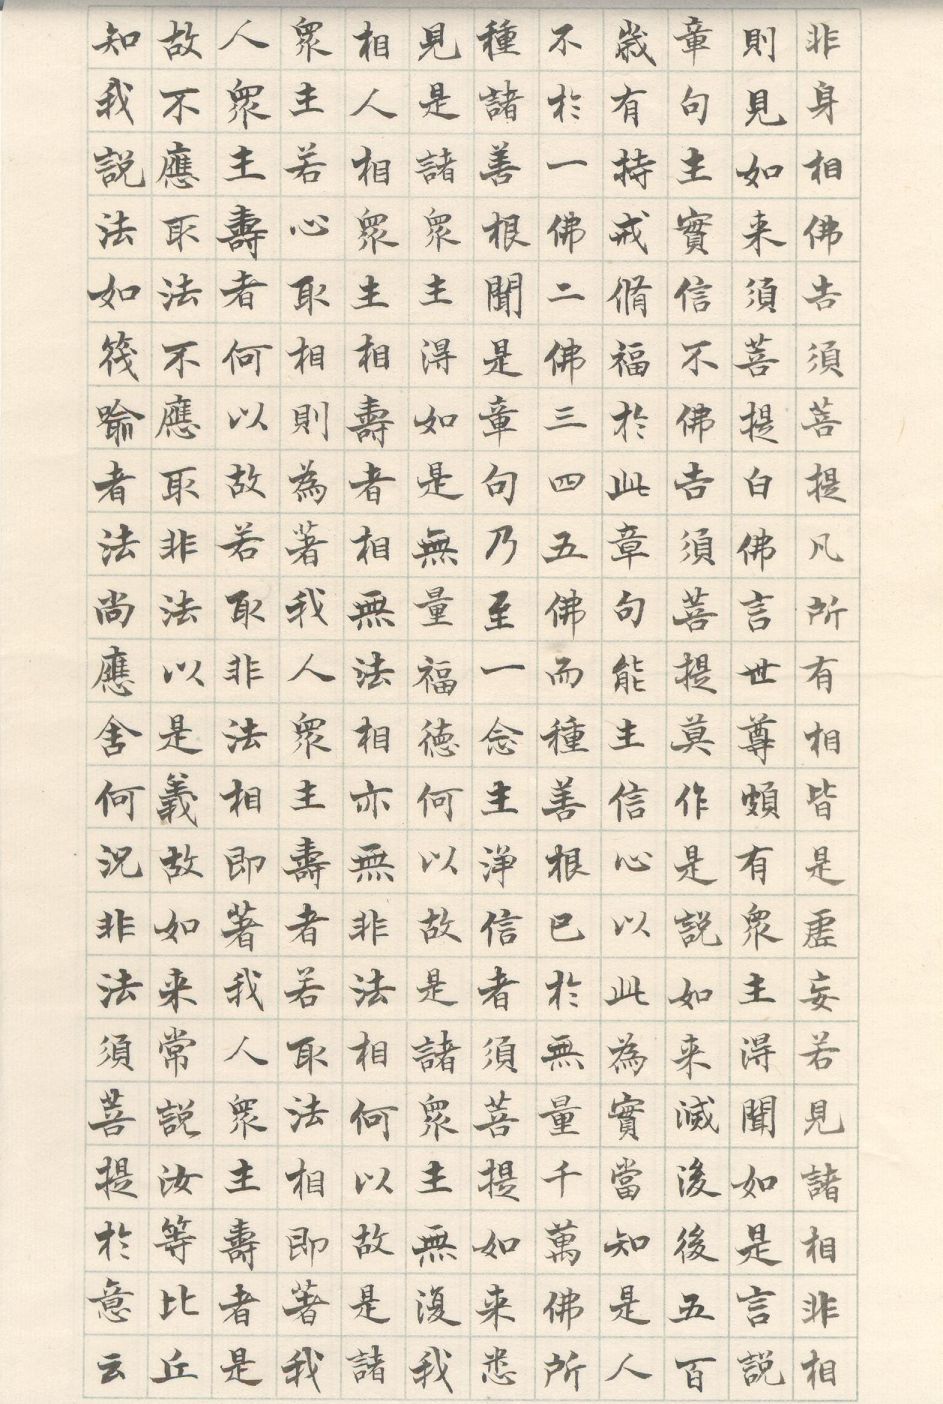 非身相佛告須菩提凡所有相皆是虛妄若見諸相非相
則見如来須菩提白佛言世尊頗有眾生得聞如是言說
章句生實信不佛告須菩提莫作是說如来滅後後五百
歲有持戒脩福於此章句能生信心以此為實當知是人
不於一佛二佛三四五佛而種善根已於無量千萬佛所
種諸善根聞是章句乃至一念生淨信者須菩提如来悉
見是諸眾生得如是無量福德何以故是諸眾生無復我
相人相眾生相壽者相無法相亦無非法相何以故是諸
眾生若心取相則為著我人眾生壽者若取法相即著我
人眾生壽者何以故若取非法相即著我人眾生壽者是
故不應取法不應取非法以是義故如来常說汝等比丘
知我說法如筏喻者法尚應舍何況非法須菩提於意云